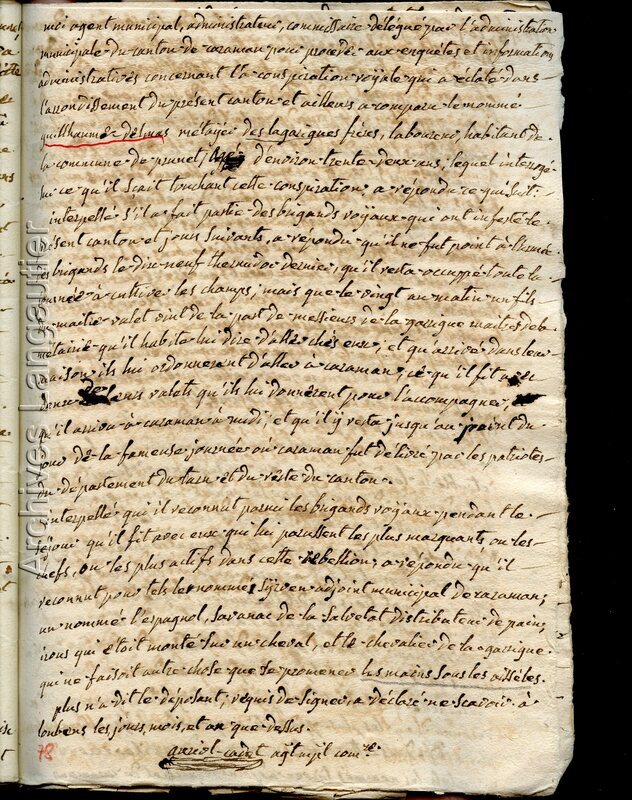 moi agent municipal, administrateur, commissaire délégué par l'administration
municipale du canton de caraman pour proceder aux enquetes et information
administratives concernant la conspiration royale qui a éclaté dans
l'arrondissement du present canton et ailleurs a comparu le nommé
guillhaumé delmas métayer des lagarigues frères, laboureur, habitant de
la commune de prunet, d'environ trente deux ans, lequel interrogé
sur ce qu'il scait touchant cette conspiration a répondu ce qui suit.
interpellé s'il a fait partie des brigands royaux qui ont infesté le
présent canton et jours suivants, a répondu qu'il ne fut point a l'armée
des brigands le dix neuf thermidor dernier, qu'il resta occuppé toute la
journée à cultiver les champs, mais que le vingt au matin un fils
du maitre valet vint de la part de messieurs de la garrigue maitres de la
metairie qu'il habite lui dire d'aller chés eux, et qu'arrivé dans leur
maison ils lui ordonnerent d'aller à caraman, ce qu'il fit avec
leurs valets qu'ils lui donnèrent pour l'accompagner,
qu'il arriva à caraman à midi, et qu'il y resta jusqu'au point du
jour de la fameuse journée où caraman fut délivré par les patriotes
du département du tarn et du reste du canton.
interpellé qui il reconnut parmi les brigands royaux pendant le
séjour qu'il fit avec eux qui lui parussent les plus marquants ou les
chefs, ou les plus actifs dans cette rebellion, a répondu qu'il
reconnut pour tels les nommés adjoint municipal de caraman;
un nommé l'espagnol, savanac de la salvetat distributeur de pain,
qui étoit monté sur un cheval, et le chevalier de la garrigue
qui ne faisoit autre chose que se promener les mains sous les aissèles.
plus n'a dit le déposant; réquis de signer, a déclaré ne scavoir à
loubens les jours, mois, et an que dessus.
78
cadet agt mpl comre.
Archives Langautier